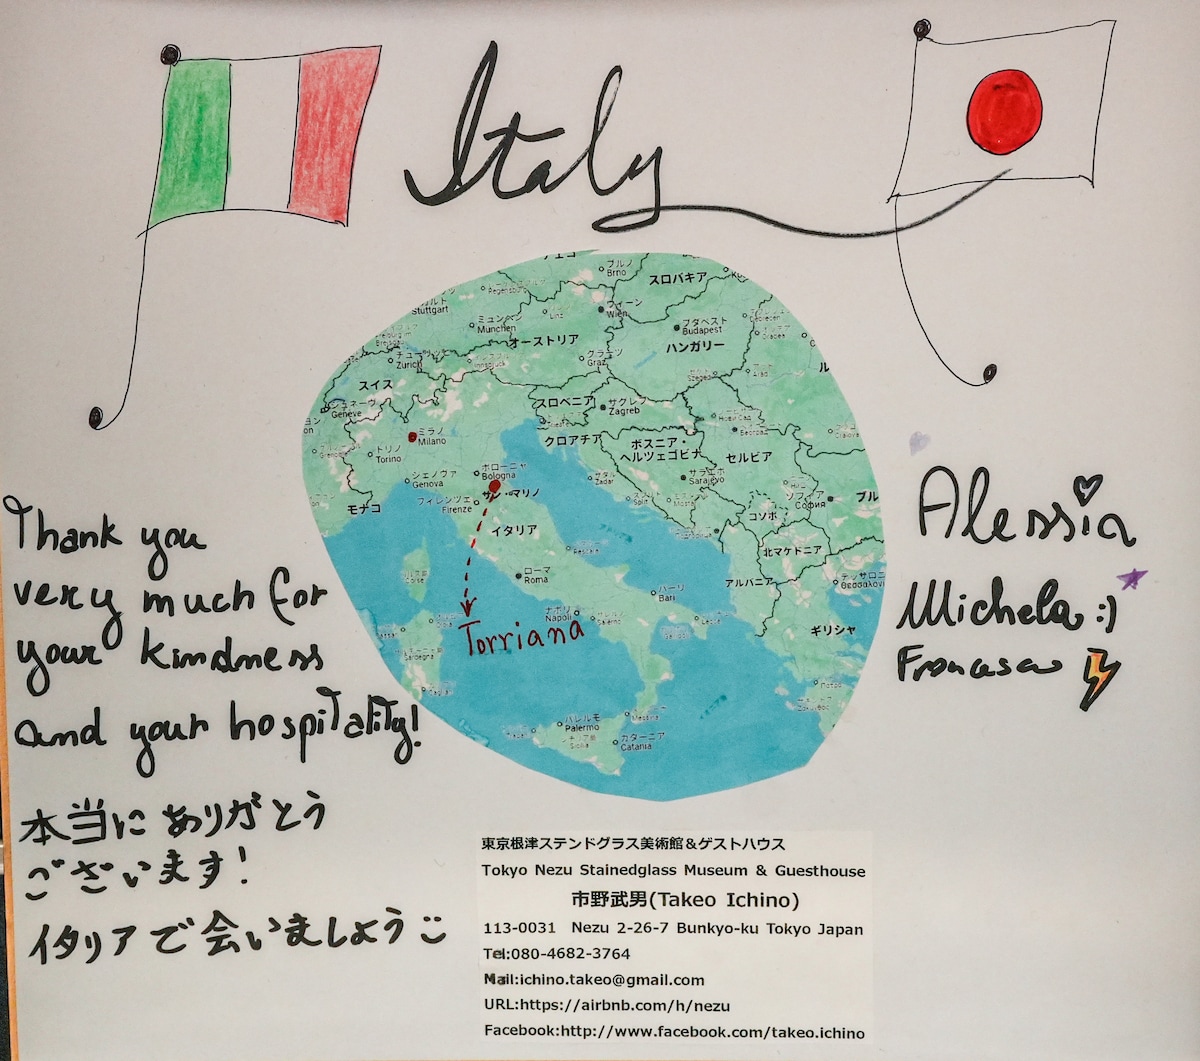 Italy
チェコ
ブルノ
Brno
スロバキア
Regensburg
Stuttgart
ミュンヘン
Munchen
Linz
ウィーン
Wien
ブダペスト
Budapest
オーストリア
ハンガリー
チューリッヒ
Zurich
Innsbruck
グラーツ
Graz
Szeged
Arad
スイス
ジュネーヴ
Geneve
スロベニア
ザグレブ
Zagreb
ミラノ
Milano
トリノ
Torino
クロアチア
ボスニア・
ヘルツェゴビナ
セルビア
ジェノヴァ
Genova
ボローニャ
Bologna
サラエボ
Sarajevo
ザダル
Zadar
サン・マリノ
フィレンツェ
Firenze
モナコ
Split
ソフィア
София
ブル
コソボ
イタリア
Pescara
北マケドニア
ローマ
Roma
アルバニア
テッサロニ
Θεσσαλονί
バーリ
Bari
ナポリ
Napoli
Salerno
Lecce
ギリシャ
Torriana
Cagliari
パレルモ
Palermo
Sicilia
Messina
カターニア
Catania
Thank you
very much for
your kindness
and your hospitality!
本当に ありがとう
ございます!
イタリアで会いましょう
Alessia
Michela :)
Francesca
東京根津ステンドグラス美術館&ゲストハウス
Tokyo Nezu Stainedglass Museum & Guesthouse
市野武男(Takeo Ichino)
113-0031 Nezu 2-26-7 Bunkyo-ku Tokyo Japan
Tel:080-4682-3764
Mail:ichino.takeo@gmail.com
URL:https://airbnb.com/h/nezu
Facebook:http://www.facebook.com/takeo.ichino